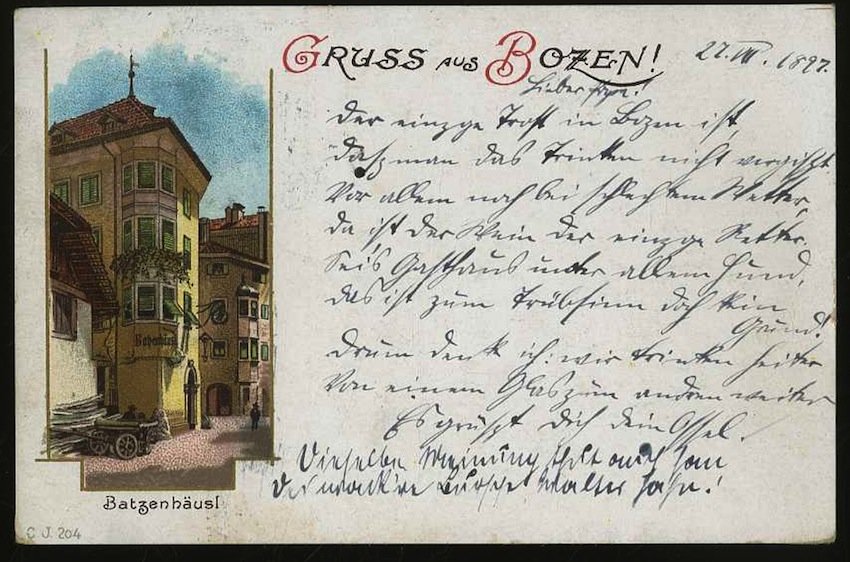 GRUSS AUS BOZEN!
27. VII. 1897.
Lieber
Der einzge Trost in Bozen ist,
dasz man das Trinken nicht vergiszt.
Vor allem noch bei schlechtem Wetter,
da ist der Wein der einzge Retter.
Seis Gasthaus unter allem Hund,
das ist zum Trübsinn doch kein
Grund!
Drum denk ich: wir trinken heiter
Von einem Glas zum andren weiter
Es grüszt Dich dein
Dieselbe Meinung theilt auch
der wack're Bursche Walter
Batzenhäusl
Batzenhäusl
C. J. 204